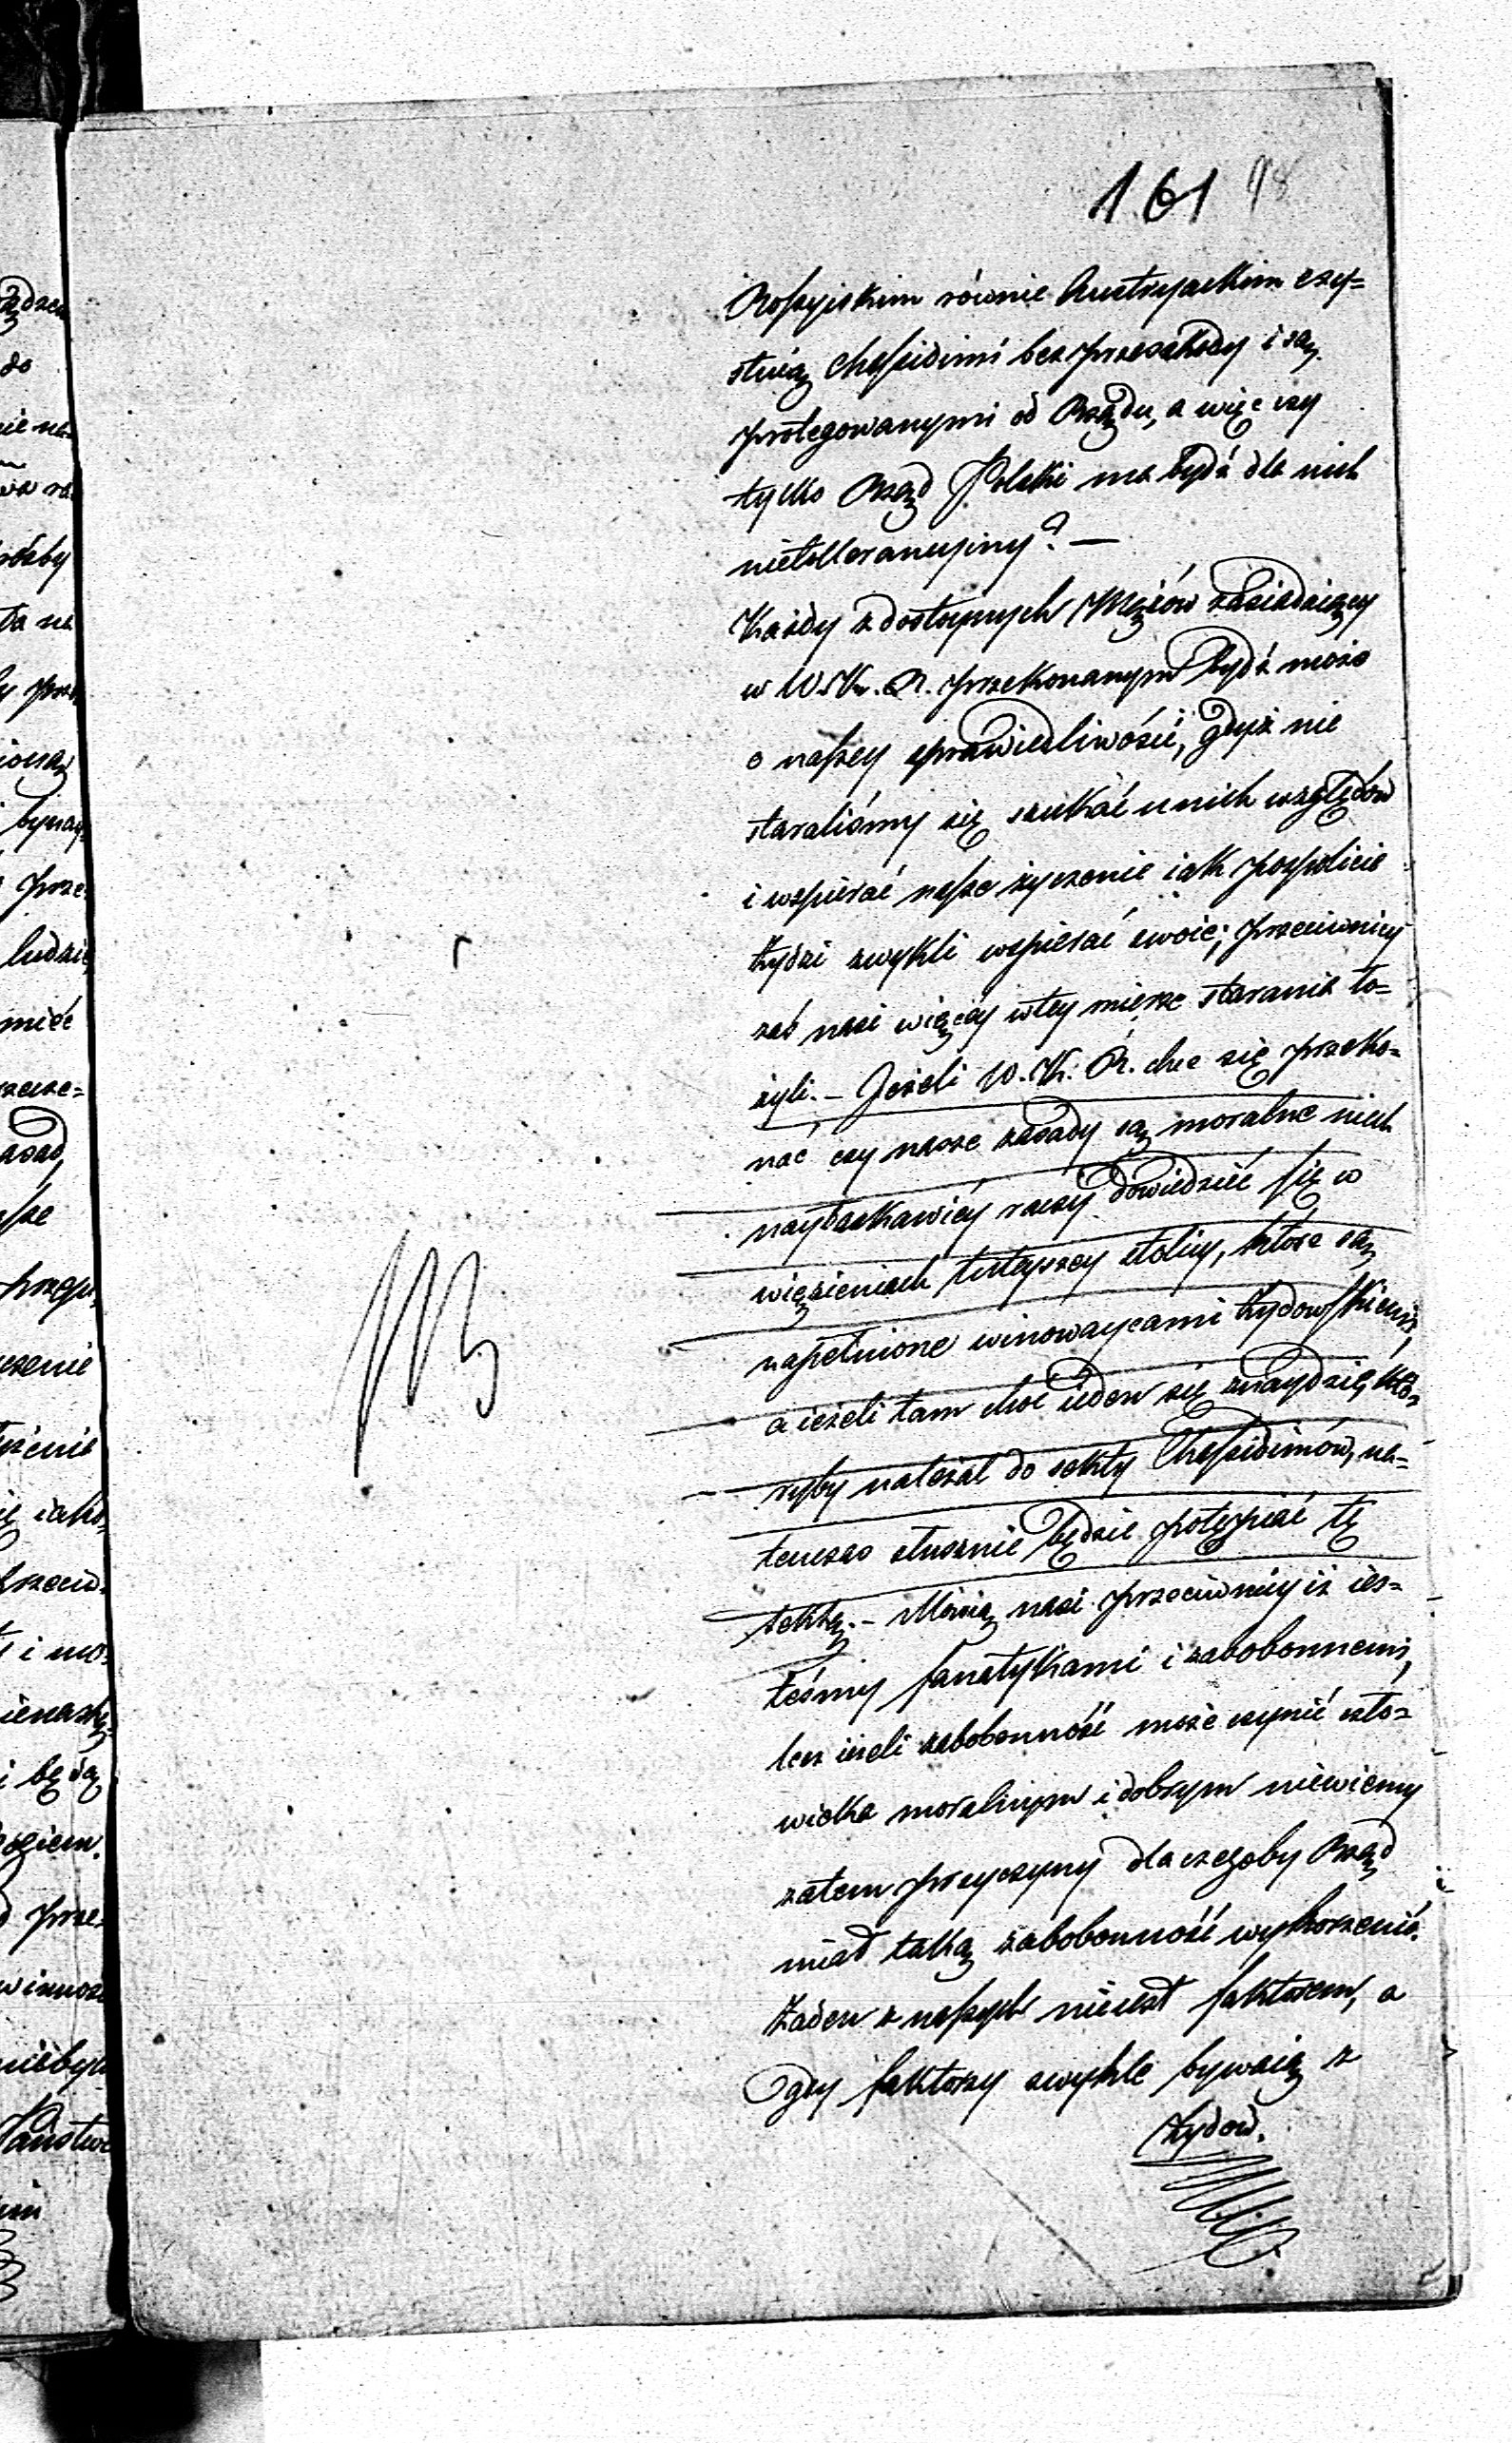 161 98
Rossyiskim równie Austryackim czy=
stuią Chassidimi bez przeszkody i są
protegowanymi od Rządu, a więc czy
tylko Rząd Polski ma bydź dla nich
nietollerancyiny? —
Każdy z dostoynych Mężów zasiadaiący
w W. K. R. przekonanym bydź może
o naszey sprawiedliwości, gdyż nie
staraliśmy się szukać u nich względów
i wspierać nasze życzenie iak pospolicie
żydzi zwykli wspierać swoie; przeciwnicy
zaś nasi więcéy w tey mierze starania ło=
żyli. — Jeżeli W. K. R. chce się przeko=
nać czy nasze zasady są moralne niech
nayłaskawiéy raczy dowiedzieć się w
więzieniach tuteyszey stolicy, które są
napełnione winowaycami żydowskiemi,
a ieżeli tam choć ieden się znaydzie, któ=
ryby należał do sekty Chassidimów, na=
tenczas słusznie będzie potępiać tę
sektę. — Mówią nasi przeciwnicy iż ies=
teśmy fanatykami i zabobonnemi,
lecz ieżeli zabobonność może czynić czło=
wieka moralnym i dobrym niewiemy
zatem przyczyny dlaczegoby Rząd
miał taką zabobonność wykorzenić.
Żaden z naszych nieiest faktorem, a
gdy faktorzy zwykle bywaią z
żydów.